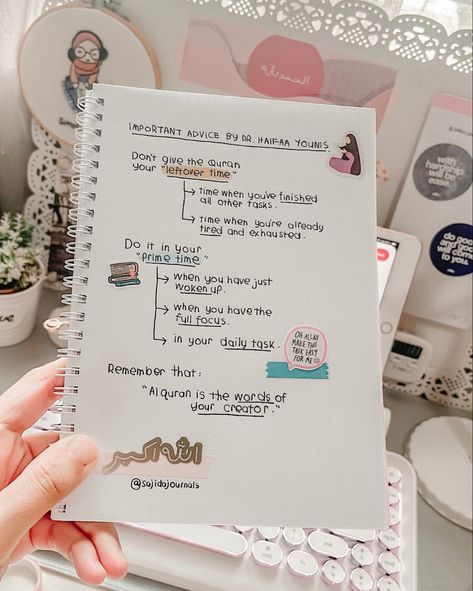 IMPORTANT ADVICE BY DR. HAIFAA YOUNIS.
DON'T GIVE THE QURAN
YOUR "LEFTOVER TIME"
→ TIME WHEN YOU'VE FINISHED
ALL OTHER TASKS.
→ TIME WHEN YOU'RE ALREADY
TIRED AND EXHAUSTED.
DO IT IN YOUR
"PRIME TIME"
→ WHEN YOU HAVE JUST
WOKEN UP.
→ WHEN YOU HAVE THE
FULL FOCUS.
→ IN YOUR DAILY TASK.
OH ALLAH
MAKE THIS
TASK EASY
FOR ME
REMEMBER THAT:
"AL QURAN IS THE WORDS OF
YOUR CREATOR."
الله أكبر
@sajidajournals
with
hardship
will be
ease.
what is
meant for you
will come
to you.